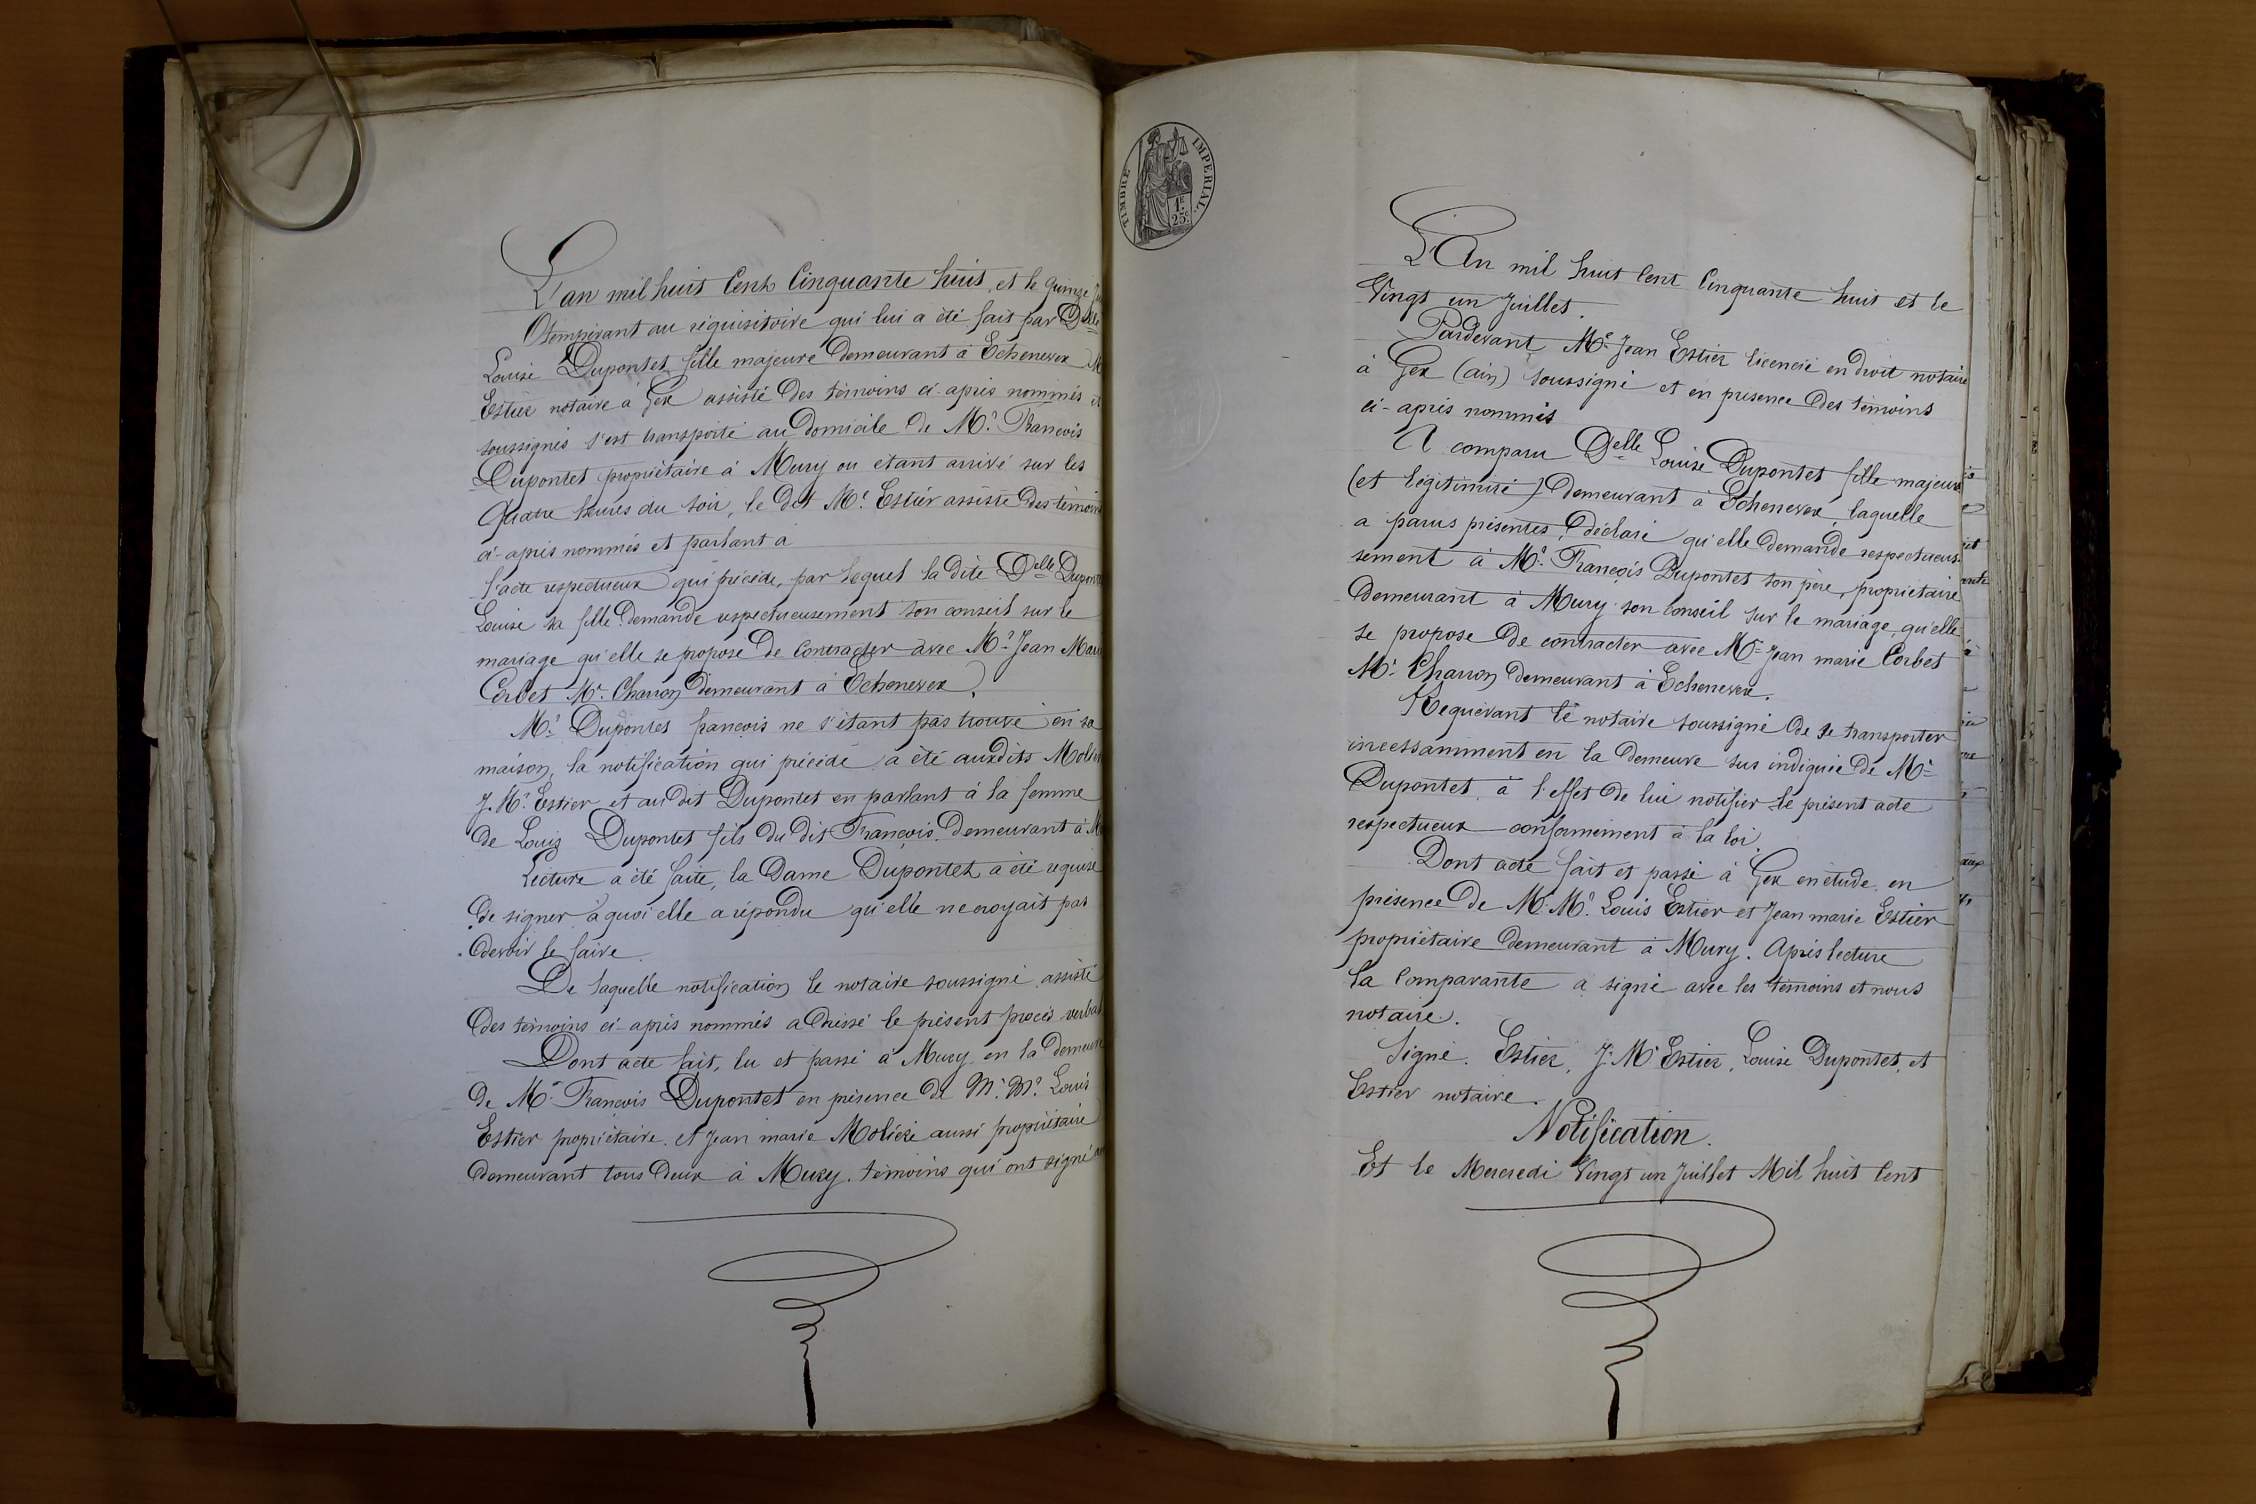 L'an mil huit Cent Cinquante huit, et le quinze
Obtempérant au réquisitoire qui lui a été fait par Delle
Louise Dupontet fille majeure demeurant à Echenevex
Estier notaire à Gex assisté des témoins ci-après nommés et
soussignés s'est transporté au domicile de Mr. François
Dupontet propriétaire à Mury ou etant arrivé sur les
Quatre heures du soir, le dit Me. Estier assisté des témoins
ci-après nommés et parlant à
l'acte respectueux qui précède, par lequel la dite Delle
Louise sa fille demande respectueusement son conseil sur le
mariage qu'elle se propose de Contracter avec Mr. Jean
Corbet Md. Charron demeurant à Echenevex.
Mr. Dupontet françois ne s'étant pas trouvé en sa
maison, la notification qui précède a été auxdits
J. M. Estier et au dit Dupontet en parlant à la femme
de Louis Dupontet fils du dit François demeurant à
Lecture a été faite, la Dame Dupontet a été requise
de signer à quoi elle a répondu qu'elle ne croyait pas
devoir le faire
De laquelle notification le notaire soussigné assisté
des témoins ci-après nommés a dressé le présent procès verbal
Dont acte fait, lu et passé à Mury en la demeure
de Mr. François Dupontet en présence de M. Mr. Louis
Estier propriétaire et Jean marie Molière aussi propriétaire
demeurant tous deux à Mury. témoins qui ont signé
TIMBRE IMPERIAL.
1F.
25C.
L'An mil huit Cent Cinquante huit et le
Vingt un Juillet.
Pardevant Me. Jean Estier licencié en droit notaire
à Gex (ain) soussigné et en présence des témoins
ci-après nommés
A comparu Delle Louise Dupontet fille majeure
(et légitimité) demeurant à Echenevex, laquelle
a parus présentes, déclaré qu'elle demande respectueu-
sement à Mr. François Dupontet son père, propriétaire
demeurant à Mury son Conseil sur le mariage, qu'elle
se propose de contracter avec Mr. Jean marie Corbet
Md. Charron demeurant à Echenevex.
Requérant le notaire soussigné de se transporter
incessamment en la demeure sus indiquée de Mr.
Dupontet, à l'effet de lui notifier le présent acte
respectueux conformément à la loi.
Dont acte fait et passé à Gex en étude, en
présence de M. Mr. Louis Estier et Jean marie Estier
propriétaire demeurant à Mury. Après lecture
la Comparante a signé avec les témoins et nous
notaire.
Signé. Estier, J. M. Estier, Louise Dupontet, et
Estier notaire.
Notification.
Et le Mercredi Vingt un Juillet Mil huit Cent